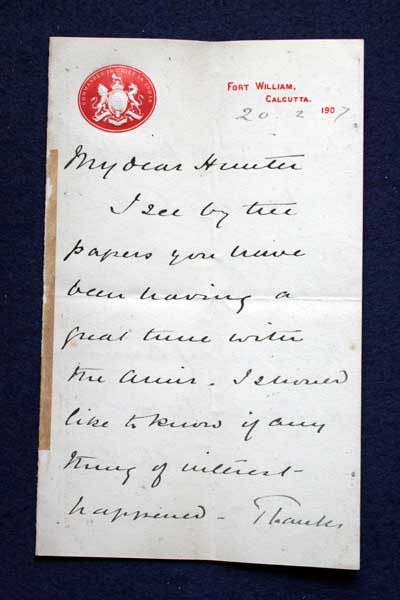 COMMANDER IN CHIEF IN INDIA
FORT WILLIAM,
CALCUTTA.
20 2 1907
My dear Hunter
I see by the
papers you have
been having a
great time with
the Amir. I should
like to know if any
thing of interest
happened - Thanks